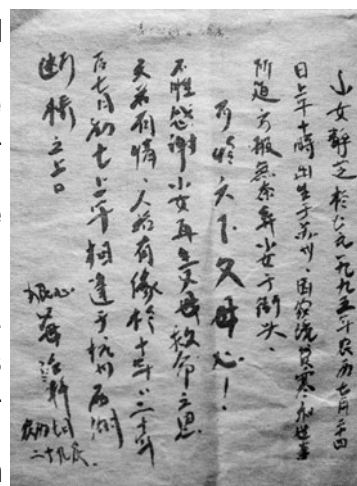 小女静芝於公元一九九五年农历七月二十四
日上午十時出生于苏州、因家境贫寒和世事
所迫万般無奈弃小女于街头、
可怜天下父母心!
不胜感谢小女再生父母救命之恩
天若有情 人若有缘於十年、二十年
后七月初七上午相逢于杭州西湖
断桥之上
狠心
农历七月
二十九晨.